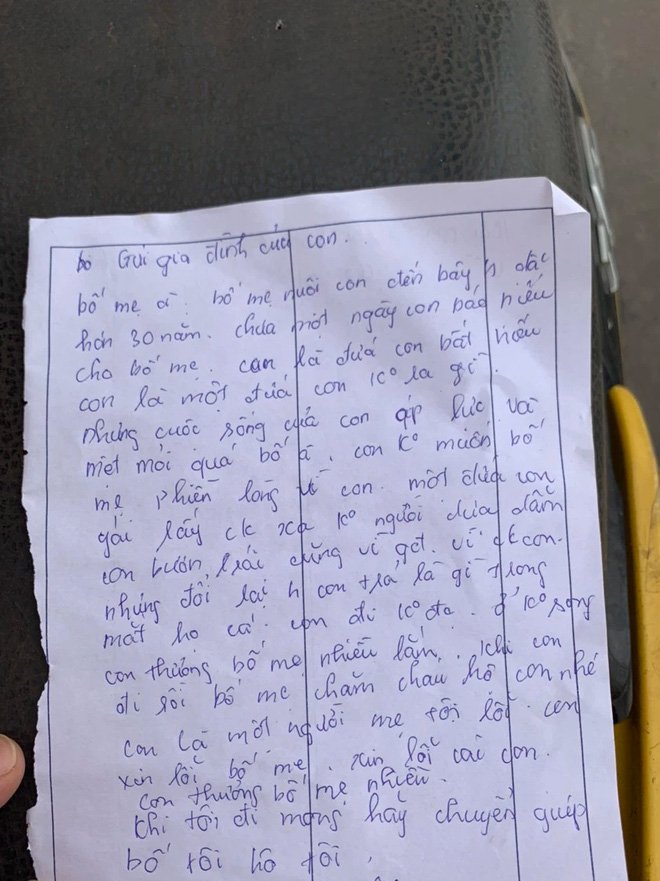 bỏ Gửi gia đình của con.
bố mẹ à. bố mẹ nuôi con đến bây h đc
hơn 30 năm. chưa một ngày con báo hiếu
cho bố mẹ. con là đứa con bất hiếu
con là một đứa con k° ra gì.
nhưng cuộc sống của con áp lực và
mệt mỏi quá bố à. con k° muốn bố
mẹ phiền lòng về con. một đứa con
gái lấy ck xa k° người dựa dẫm
con bươn trải cũng vì vì ck con.
nhưng đổi lại h con trả là gì trong
mắt họ cả. con đi k° đc. ở k° song
con thương bố mẹ nhiều lắm. khi con
đi rồi bố mẹ chăm cháu hộ con nhé
con là một người mẹ tội lỗi. con
xin lỗi bố mẹ. xin lỗi các con.
con thương bố mẹ nhiều.
khi tôi đi mong hãy chuyển giúp
bố tôi hộ tôi,